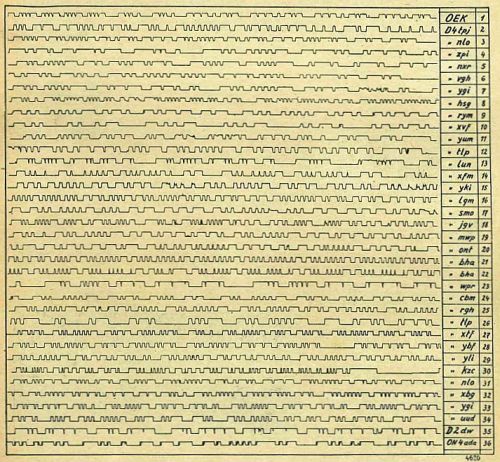 OEK 1
D4tpj 2
" nlo 3
" xpi 4
" nxr 5
" vgh 6
" ygi 7
" hsg 8
" rym 9
" xvf 10
" yum 11
" tfp 12
" lun 13
" xfm 14
" yki 15
" lgm 16
" smo 17
" jgv 18
" mwp 19
" ont 20
" bhq 21
" bha 22
" wpr 23
" cbm 24
" rgh 25
" tlp 26
" xlf 27
" ybf 28
" yli 29
" kzc 30
" nlo 31
" xbg 32
" ygi 33
" uud 34
D2dw 35
ON4ada 36